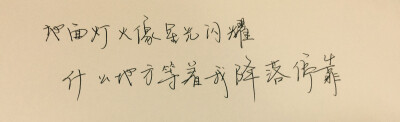 地面灯火像星光闪耀
什么地方等着我降落停靠